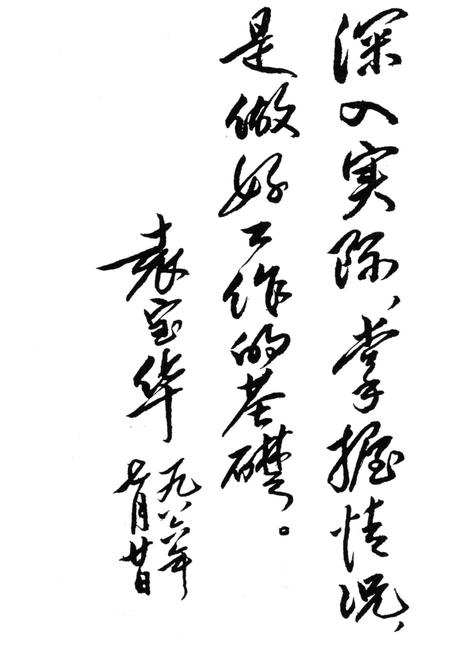 深入实际、掌握情况，
是做好工作的基礎。
袁宝华
一九八六年
七月廿日